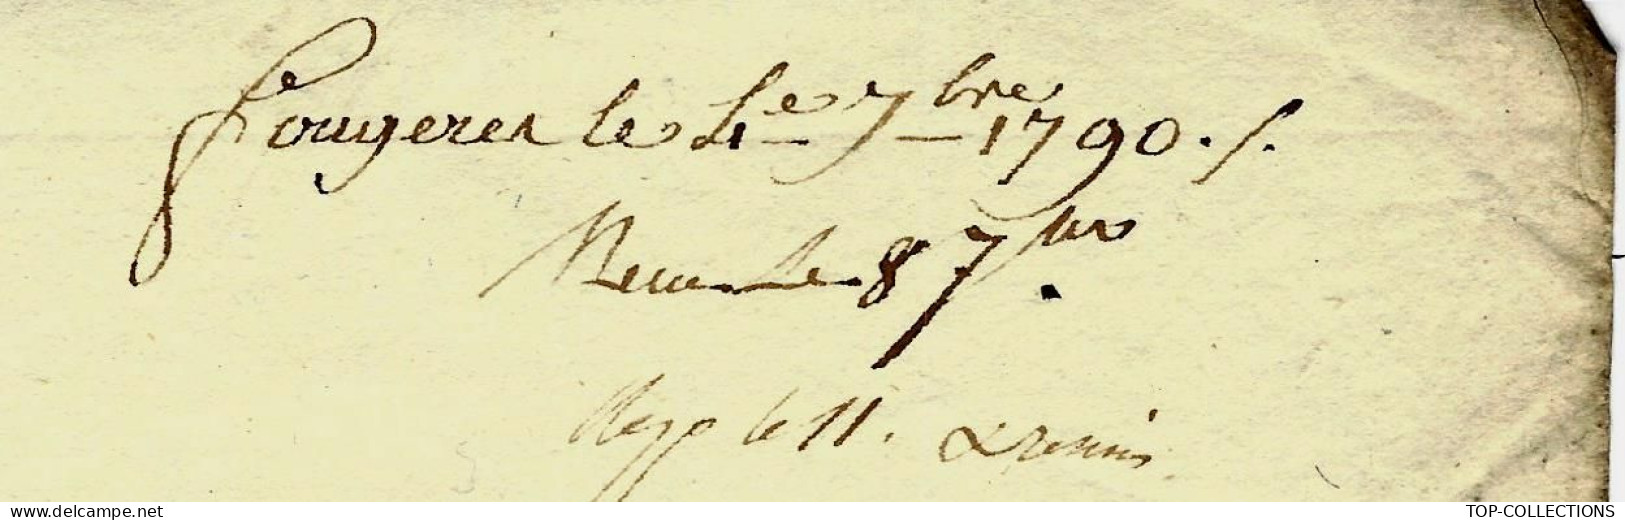 Fougeres le 4e 7bre 1790 ./.
Recu le 8 7bre.
Rep le 11. & remis
www.delcampe.net
TOP-COLLECTIONS